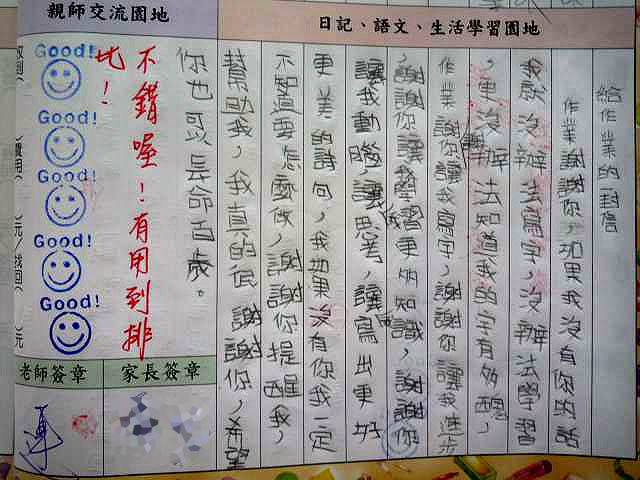 日記、語文、生活學習園地
給作業的一封信
作業謝謝你,如果我沒有你的話
我就沒辦法寫字,沒辦法學習
,更沒辦法知道我的字有多醜,
作業謝謝你讓我寫字,謝謝你讓我進步
,謝謝你讓我學習更多的知識,謝謝你
讓我動腦,讓我思考,讓我寫出更好
更美的詩句,我如果沒有你我一定
不知道要怎麼做,謝謝你提醒我,
幫助我,我真的很謝謝你,希望
你也可以長命百歲。
親師交流園地
不錯喔!有用到排
比!
Good!
Good!
Good!
Good!
Good!
元/找回
元
家長簽章
老師簽章